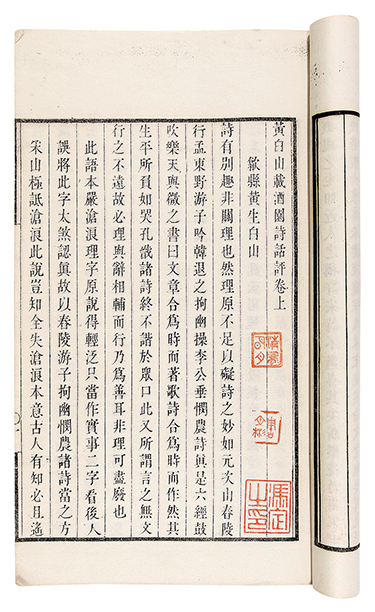 黃白山載酒園詩話評卷上
歙縣黃生白山
詩有別趣非關理也然理原不足以礙詩之妙如元次山舂陵
行孟東野游子吟韓退之拘幽操李公垂憫農詩眞是六經鼓
吹樂天與微之書曰文章合爲時而著歌詩合爲時而作然其
生平所負如哭孔戡諸詩終不諧於衆口此又所謂言之無文
行之不遠故必理與辭相輔而行乃爲善耳非理可盡廢也
此語本嚴滄浪理字原說得輕泛只當作實事二字看後人
誤將此字太煞認眞故以舂陵游子拘幽憫農諸詩當之方
采山極詆滄浪此說豈知全失滄浪本意古人有知必且遙